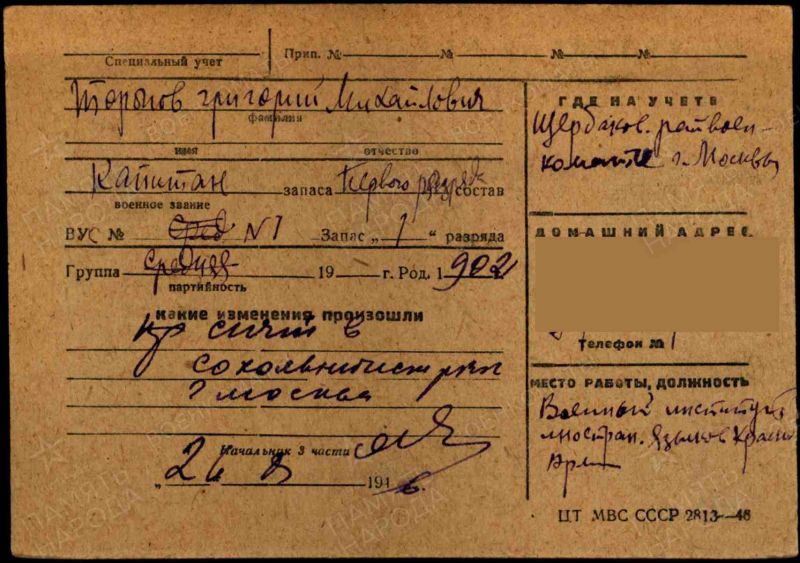 Специальный учет
Прип. № № № №
Григорий Михайлович
фамилия
имя отчество
Капитан запаса Первого состав
военное звание
ВУС № сред №1 Запас „1“ разряда
Группа средняя 19 г. Род. 1902
партийность
какие изменения произошли
в
г Москва
Начальник 3 части
„26 8 194
ГДЕ НА УЧЕТЕ
Щербаков. райвоен-
комате г. Москвы
ДОМАШНИЙ АДРЕС
Телефон № 1
МЕСТО РАБОТЫ, ДОЛЖНОСТЬ
Военный институт
иностран. языков Красн
Арм
ЦТ МВС СССР 2813—46
ПАМЯТЬ НАРОДА